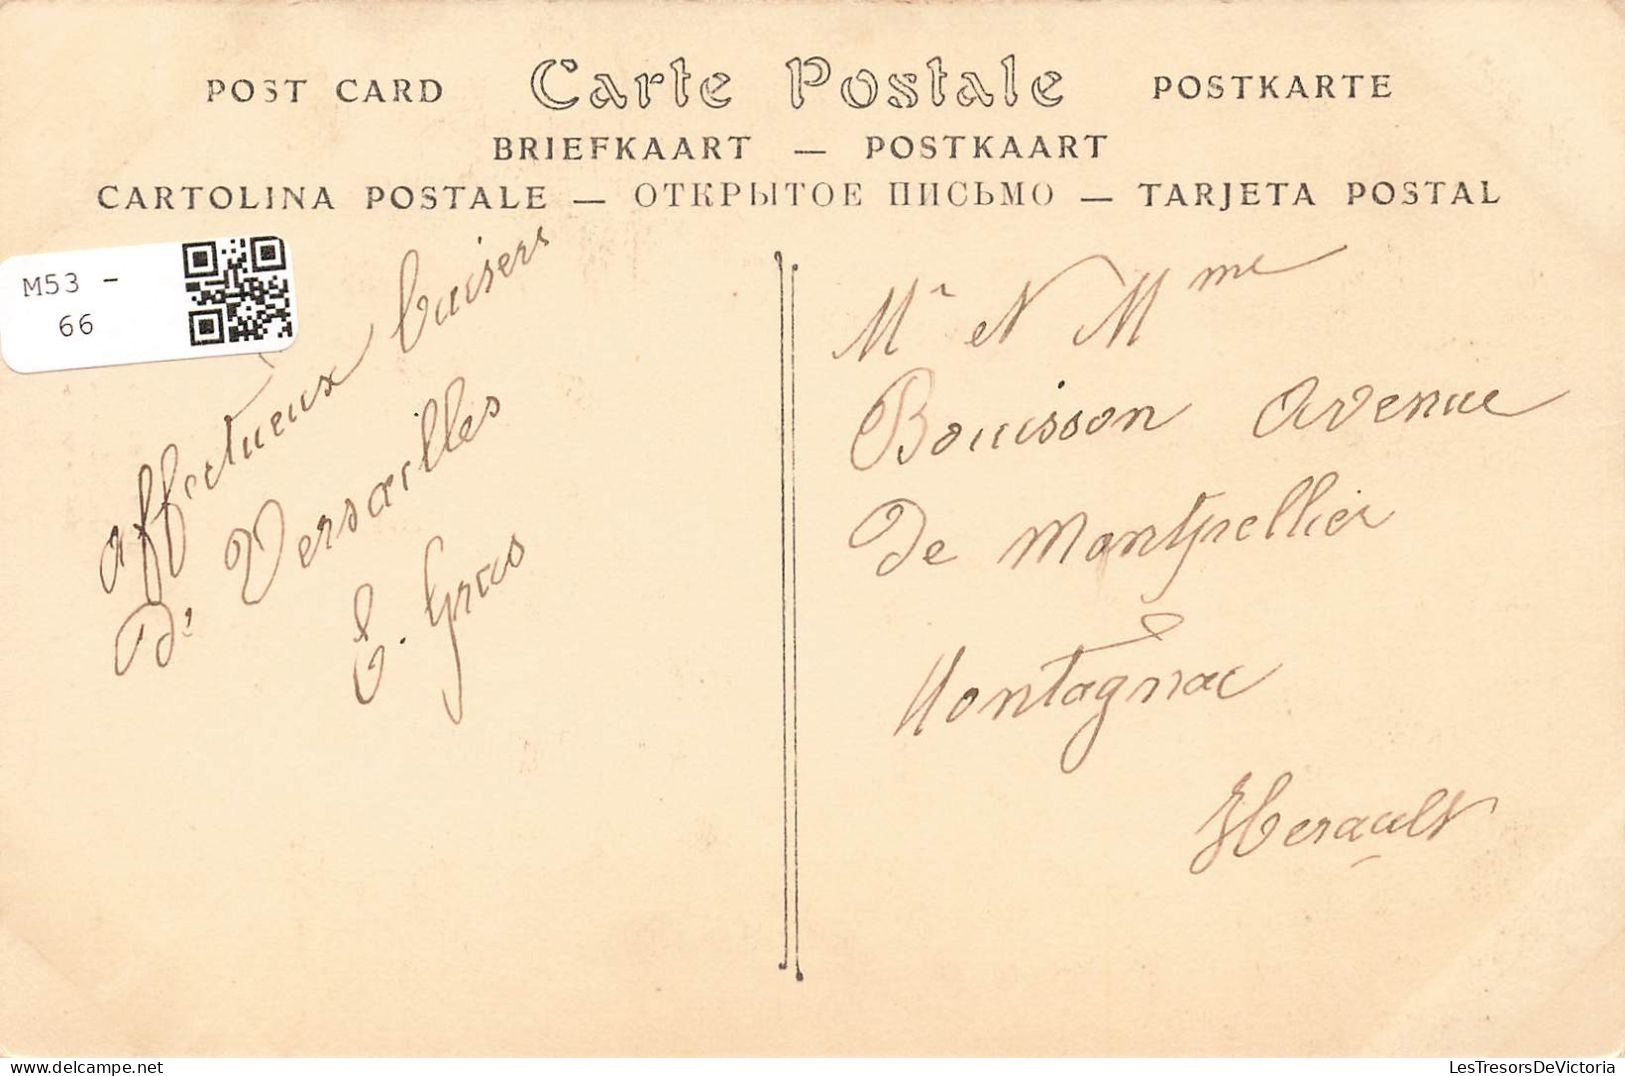 POST CARD Carte Postale POSTKARTE
BRIEFKAART — POSTKAART
CARTOLINA POSTALE — ОТКРЫТОЕ ПИСЬМО — TARJETA POSTAL
M53 -
66
affectueux baisers
De Versailles
E. Gras
Mr et Mme
Bouisson Avenue
De Montpellier
Montagnac
Herault
LesTresorsDeVictoria